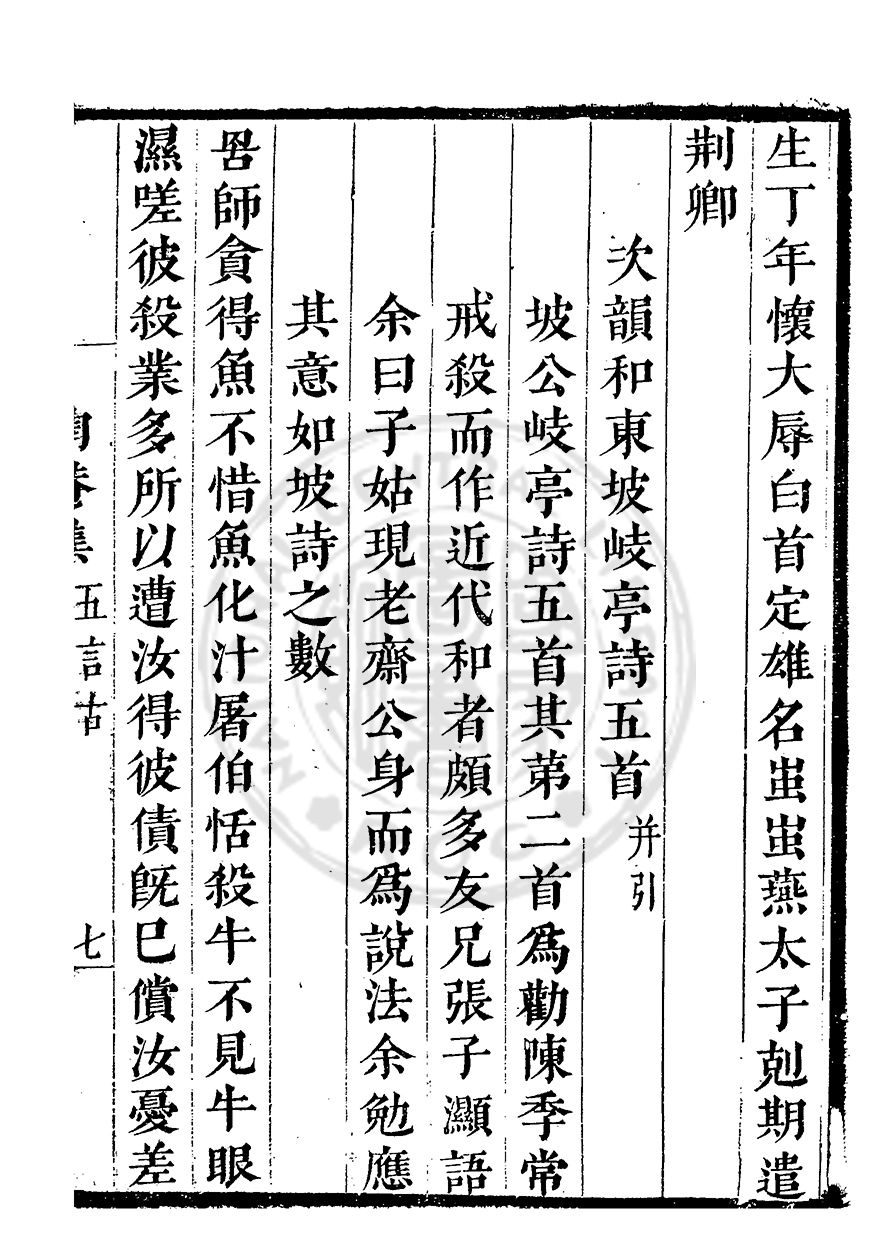 生丁年懷大辱白首定雄名蚩蚩燕太子剋期遣
荆卿
次韻和東坡岐亭詩五首 并引
坡公岐亭詩五首其苐二首爲勸陳季常
戒殺而作近代和者頗多友兄張子灝語
余曰子姑現老齋公身而爲說法余勉應
其意如坡詩之數
罟師貪得魚不惜魚化汁屠伯恬殺牛不見牛眼
濕嗟彼殺業多所以遭汝得彼債旣巳償汝憂差
陶菴集 五言古 七